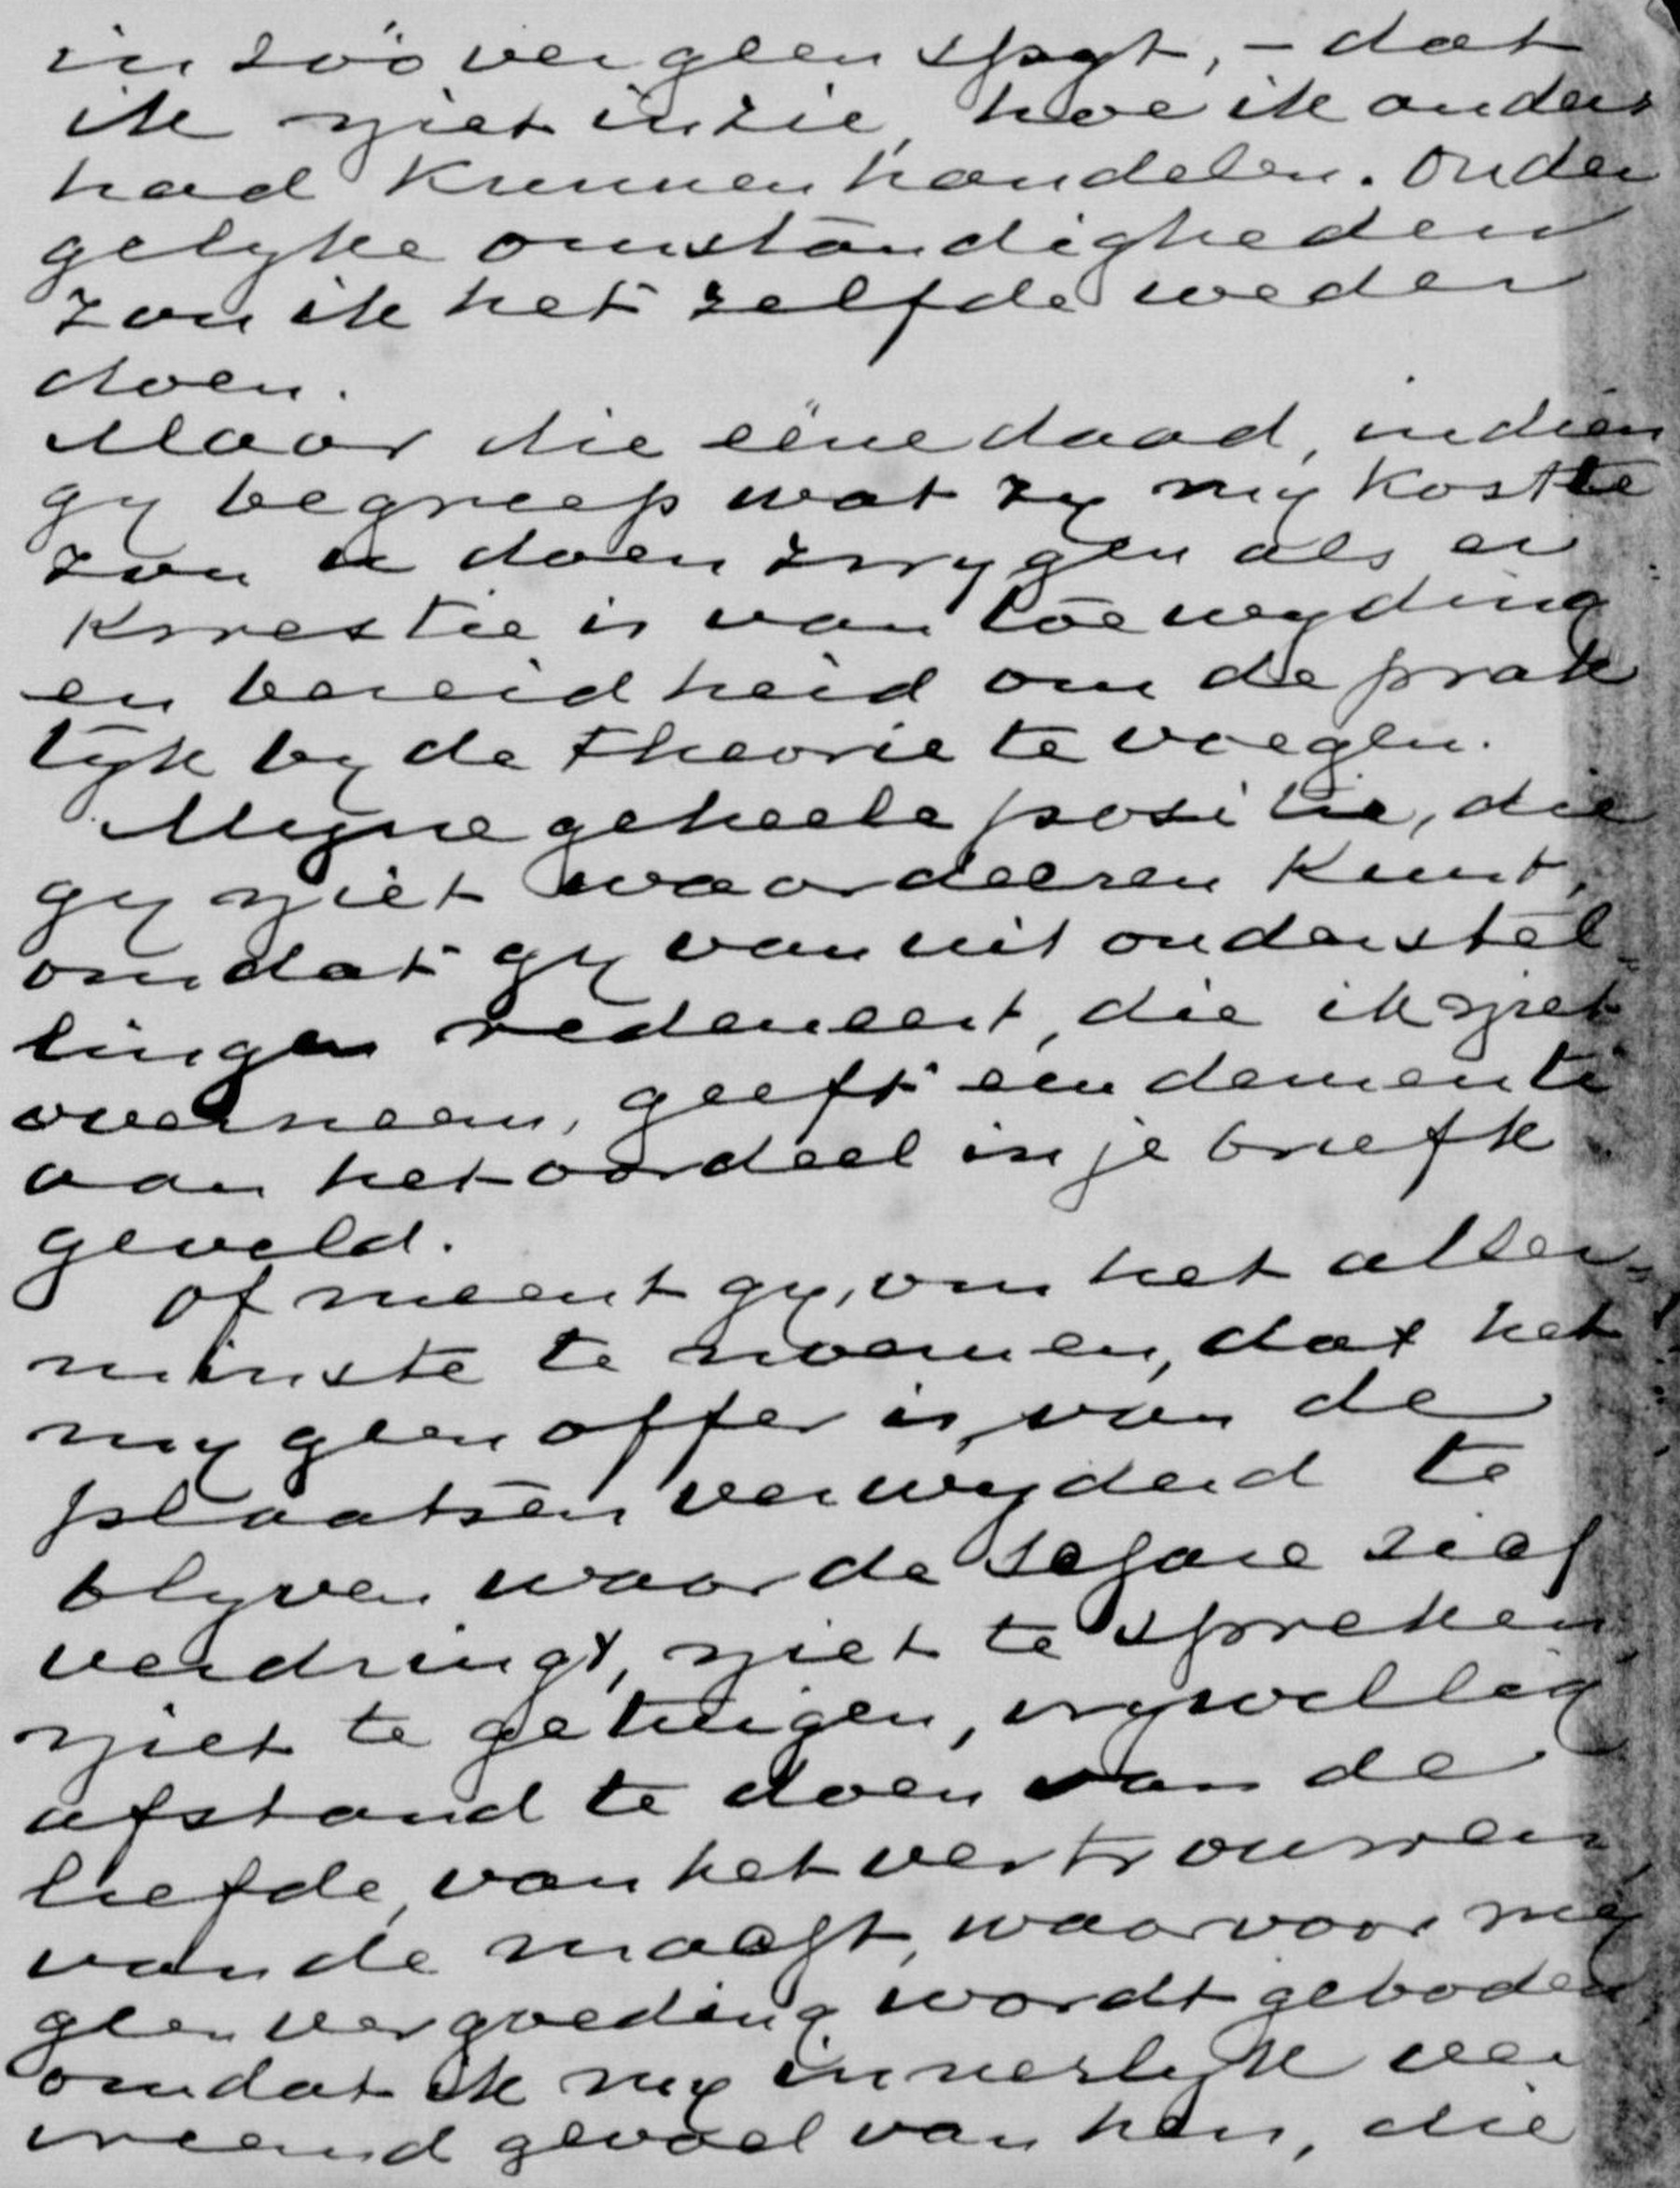 in zoover geen spyt, – dat
ik niet inzie, hoe ik anders
had kunnen handelen. Onder
gelyke omstandigheden
zou ik het zelfde weder
doen.
Maar die eéne daad, indien
gy begreep wat zy my kostte
zou u doen zwygen als er
kwestie is van toewyding
en bereidheid om de prak
tyk by de theorie te voegen.
Myne geheele positie, die
gy niet waardeeren kunt,
omdat gy van uit onderstel-
lingen redeneert, die ik niet
overneem, geeft een dementi
aan het oordeel in je briefk
geveld.
Of meent gy, om het aller-
minste te noemen, dat het
my geen offer is, van de
plaatsen verwyderd te
blyven waar de schare zich
verdringt, niet te spreken,
niet te getuigen, vrywillig
afstand te doen van de
liefde, van het vertrouwen
van de macht, waarvoor my
geen vergoeding wordt geboden,
omdat ik my innerlyk ver
vreemd gevoel van hen, die